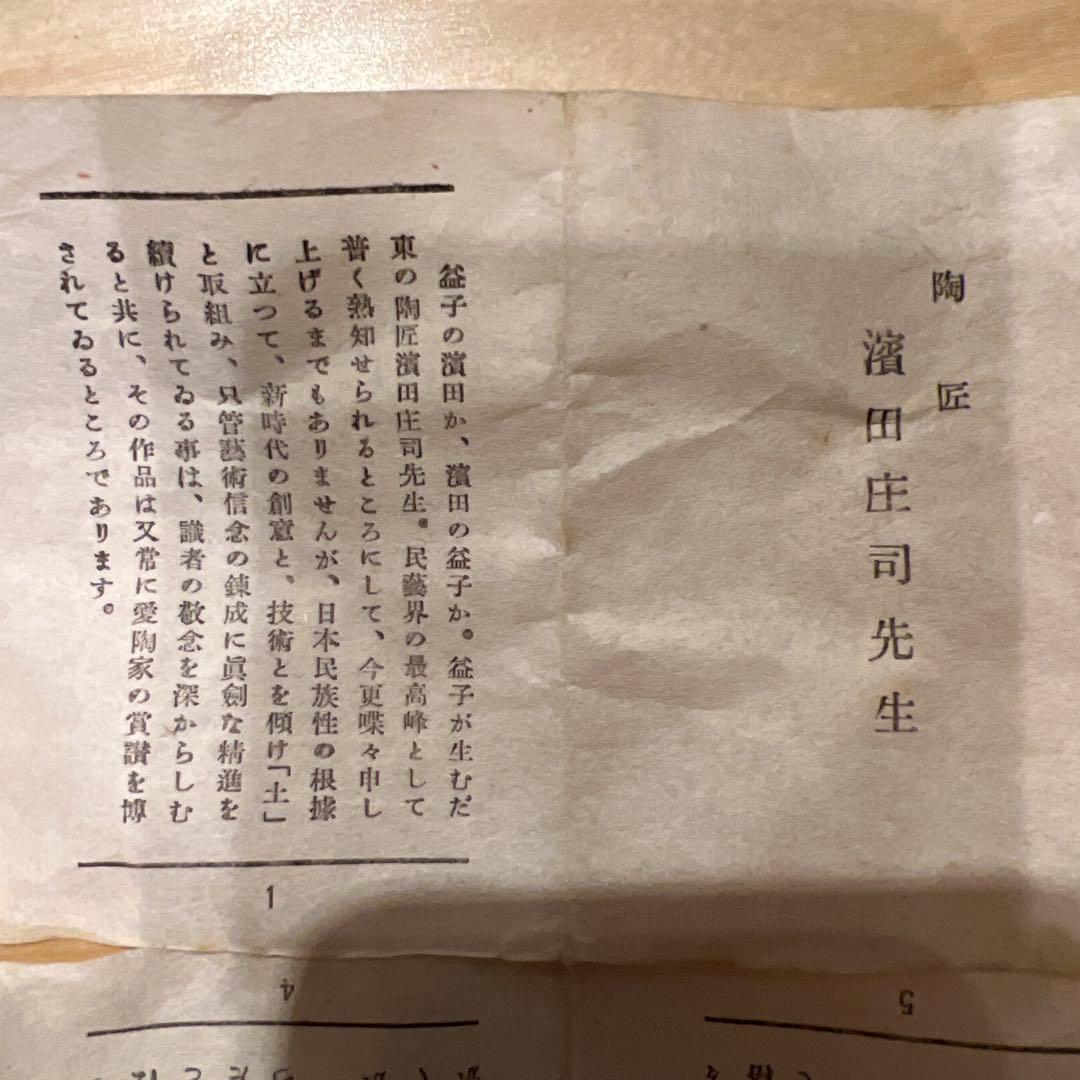 陶匠
濱田庄司先生
益子の濱田か、濱田の益子か。益子が生むだ
東の陶匠濱田庄司先生。民藝界の最高峰として
普く熟知せられるところにして、今更喋々申し
上げるまでもありませんが、日本民族性の根據
に立つて、新時代の創意と、技術とを傾け「土」
と取組み、只管藝術信念の錬成に眞劍な精進を
續けられてゐる事は、識者の敬念を深からしむ
ると共に、その作品は又常に愛陶家の賞讃を博
されてゐるところであります。
1
4
5